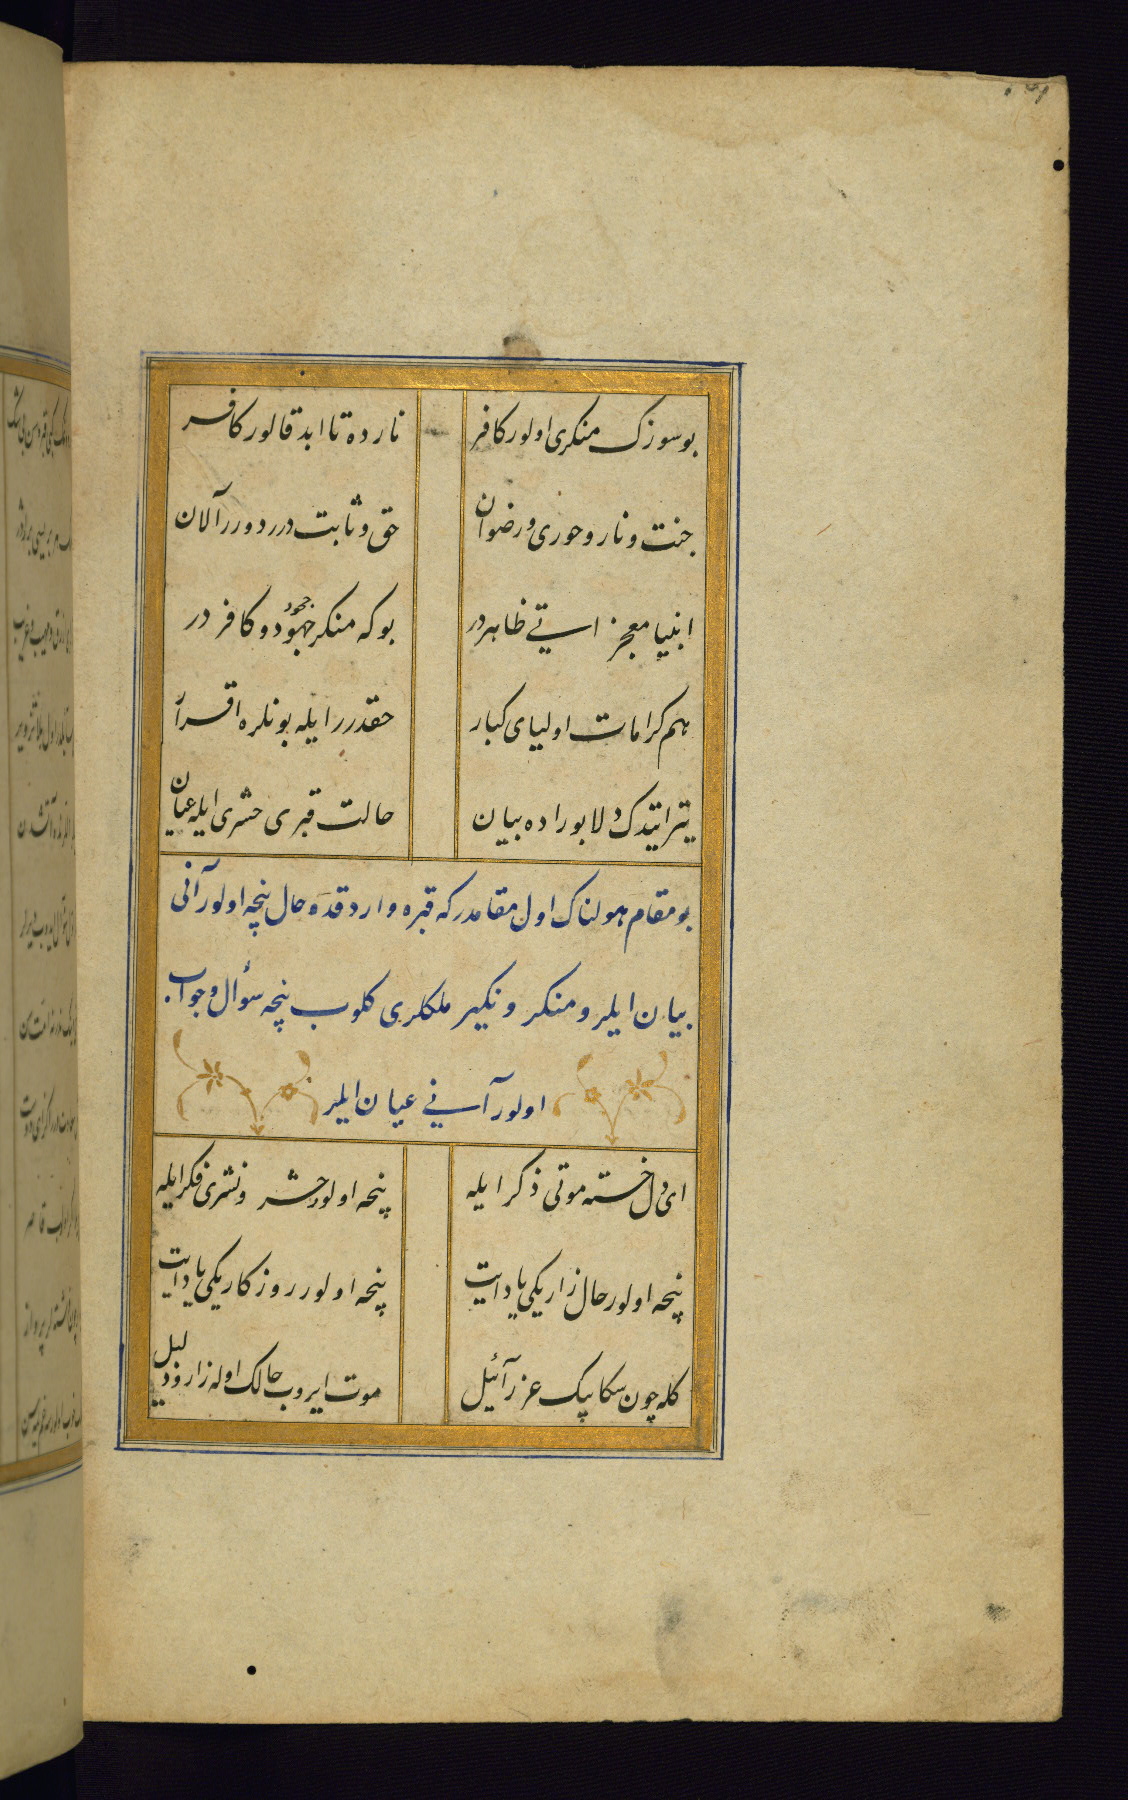 بو سوزك منكری اولور كافر نارده تا ابد قالور كافر
جنت و نار و حوری و رضوان حق و ثابت درر دورر آلان
انبیا معجز اتی ظاهردر بو كه منكر جهود و كافر در
جحود
هم كرامات اولیای كبار حقدرر ایله بونلره اقرار
یتر ایتدك دلا بوراده بیان حالت قبری حشری ایله عیان
بو مقام هولناك اول مقامدر كه قبره واردقده حال نیچه اولور آنی
بیان ایلر و منكر و نكیر ملكلری كلوب نیچه سؤال و جواب
اولور آنی عیان ایلر
ای دل خسته موتی ذكر ایله نیچه اولور حشر و نشری فكر ایله
نیچه اولور حال زاریكی یاد ایت نیچه اولور روزكاریكی یاد ایت
كله چون سكا پیك عزرآئیل موت ایروب حالك اوله زار و ذلیل